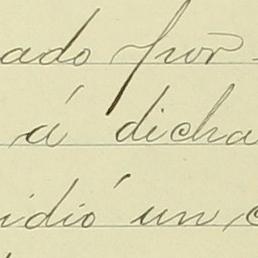 ado por
á dicha
idió un